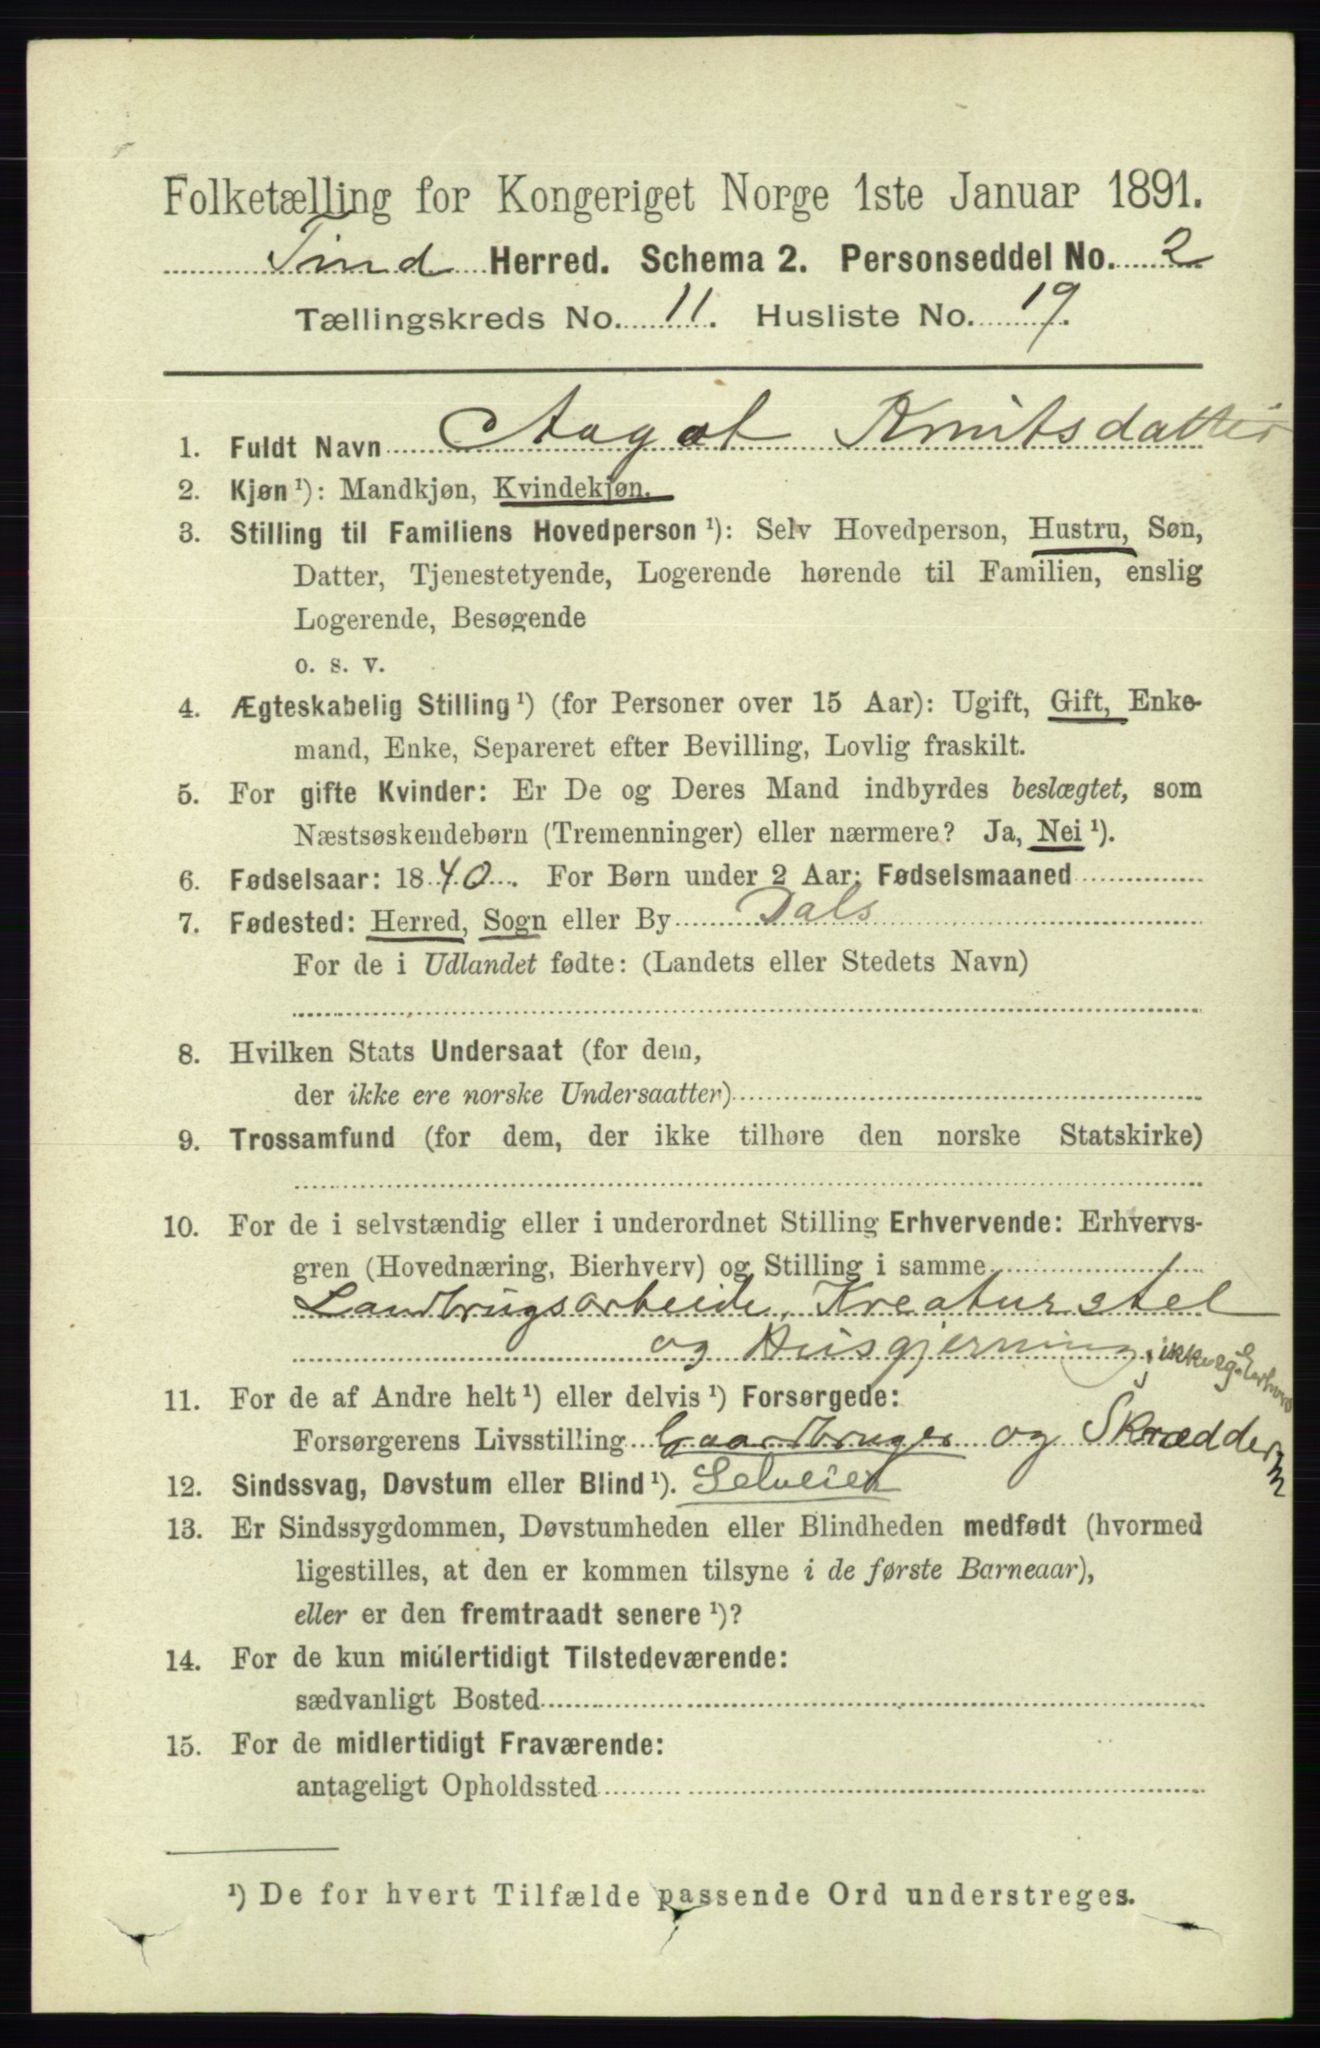 Folketælling for Kongeriget Norge 1ste Januar 1891.
Tind Herred. Schema 2. Personseddel No. 2
Tællingskreds No. 11. Husliste No. 19.
1. Fuldt Navn Aagot Knutsdatter
2. Kjøn ¹): Mandkjøn, Kvindekjøn.
3. Stilling til Familiens Hovedperson ¹): Selv Hovedperson, Hustru, Søn,
Datter, Tjenestetyende, Logerende hørende til Familien, enslig
Logerende, Besøgende
o. s. v.
4. Ægteskabelig Stilling ¹) (for Personer over 15 Aar): Ugift, Gift, Enke-
mand, Enke, Separeret efter Bevilling, Lovlig fraskilt.
5. For gifte Kvinder: Er De og Deres Mand indbyrdes beslægtet, som
Næstsøskendebørn (Tremenninger) eller nærmere? Ja, Nei ¹).
6. Fødselsaar: 1840. For Børn under 2 Aar: Fødselsmaaned
7. Fødested: Herred, Sogn eller By Dals
For de i Udlandet fødte: (Landets eller Stedets Navn)
8. Hvilken Stats Undersaat (for dem,
der ikke ere norske Undersaatter)
9. Trossamfund (for dem, der ikke tilhøre den norske Statskirke)
10. For de i selvstændig eller i underordnet Stilling Erhvervende: Erhvervs-
gren (Hovednæring, Bierhverv) og Stilling i samme
Landbrugsarbeide, Kreaturstel
og Husgjerning, ikke eg. Erhverv
11. For de af Andre helt ¹) eller delvis ¹) Forsørgede:
Forsørgerens Livsstilling Gaardbruger og Skrædder
12. Sindssvag, Døvstum eller Blind ¹). Selveier
13. Er Sindssygdommen, Døvstumheden eller Blindheden medfødt (hvormed
ligestilles, at den er kommen tilsyne i de første Barneaar),
eller er den fremtraadt senere ¹)?
14. For de kun midlertidigt Tilstedeværende:
sædvanligt Bosted
15. For de midlertidigt Fraværende:
antageligt Opholdssted
¹) De for hvert Tilfælde passende Ord understreges.